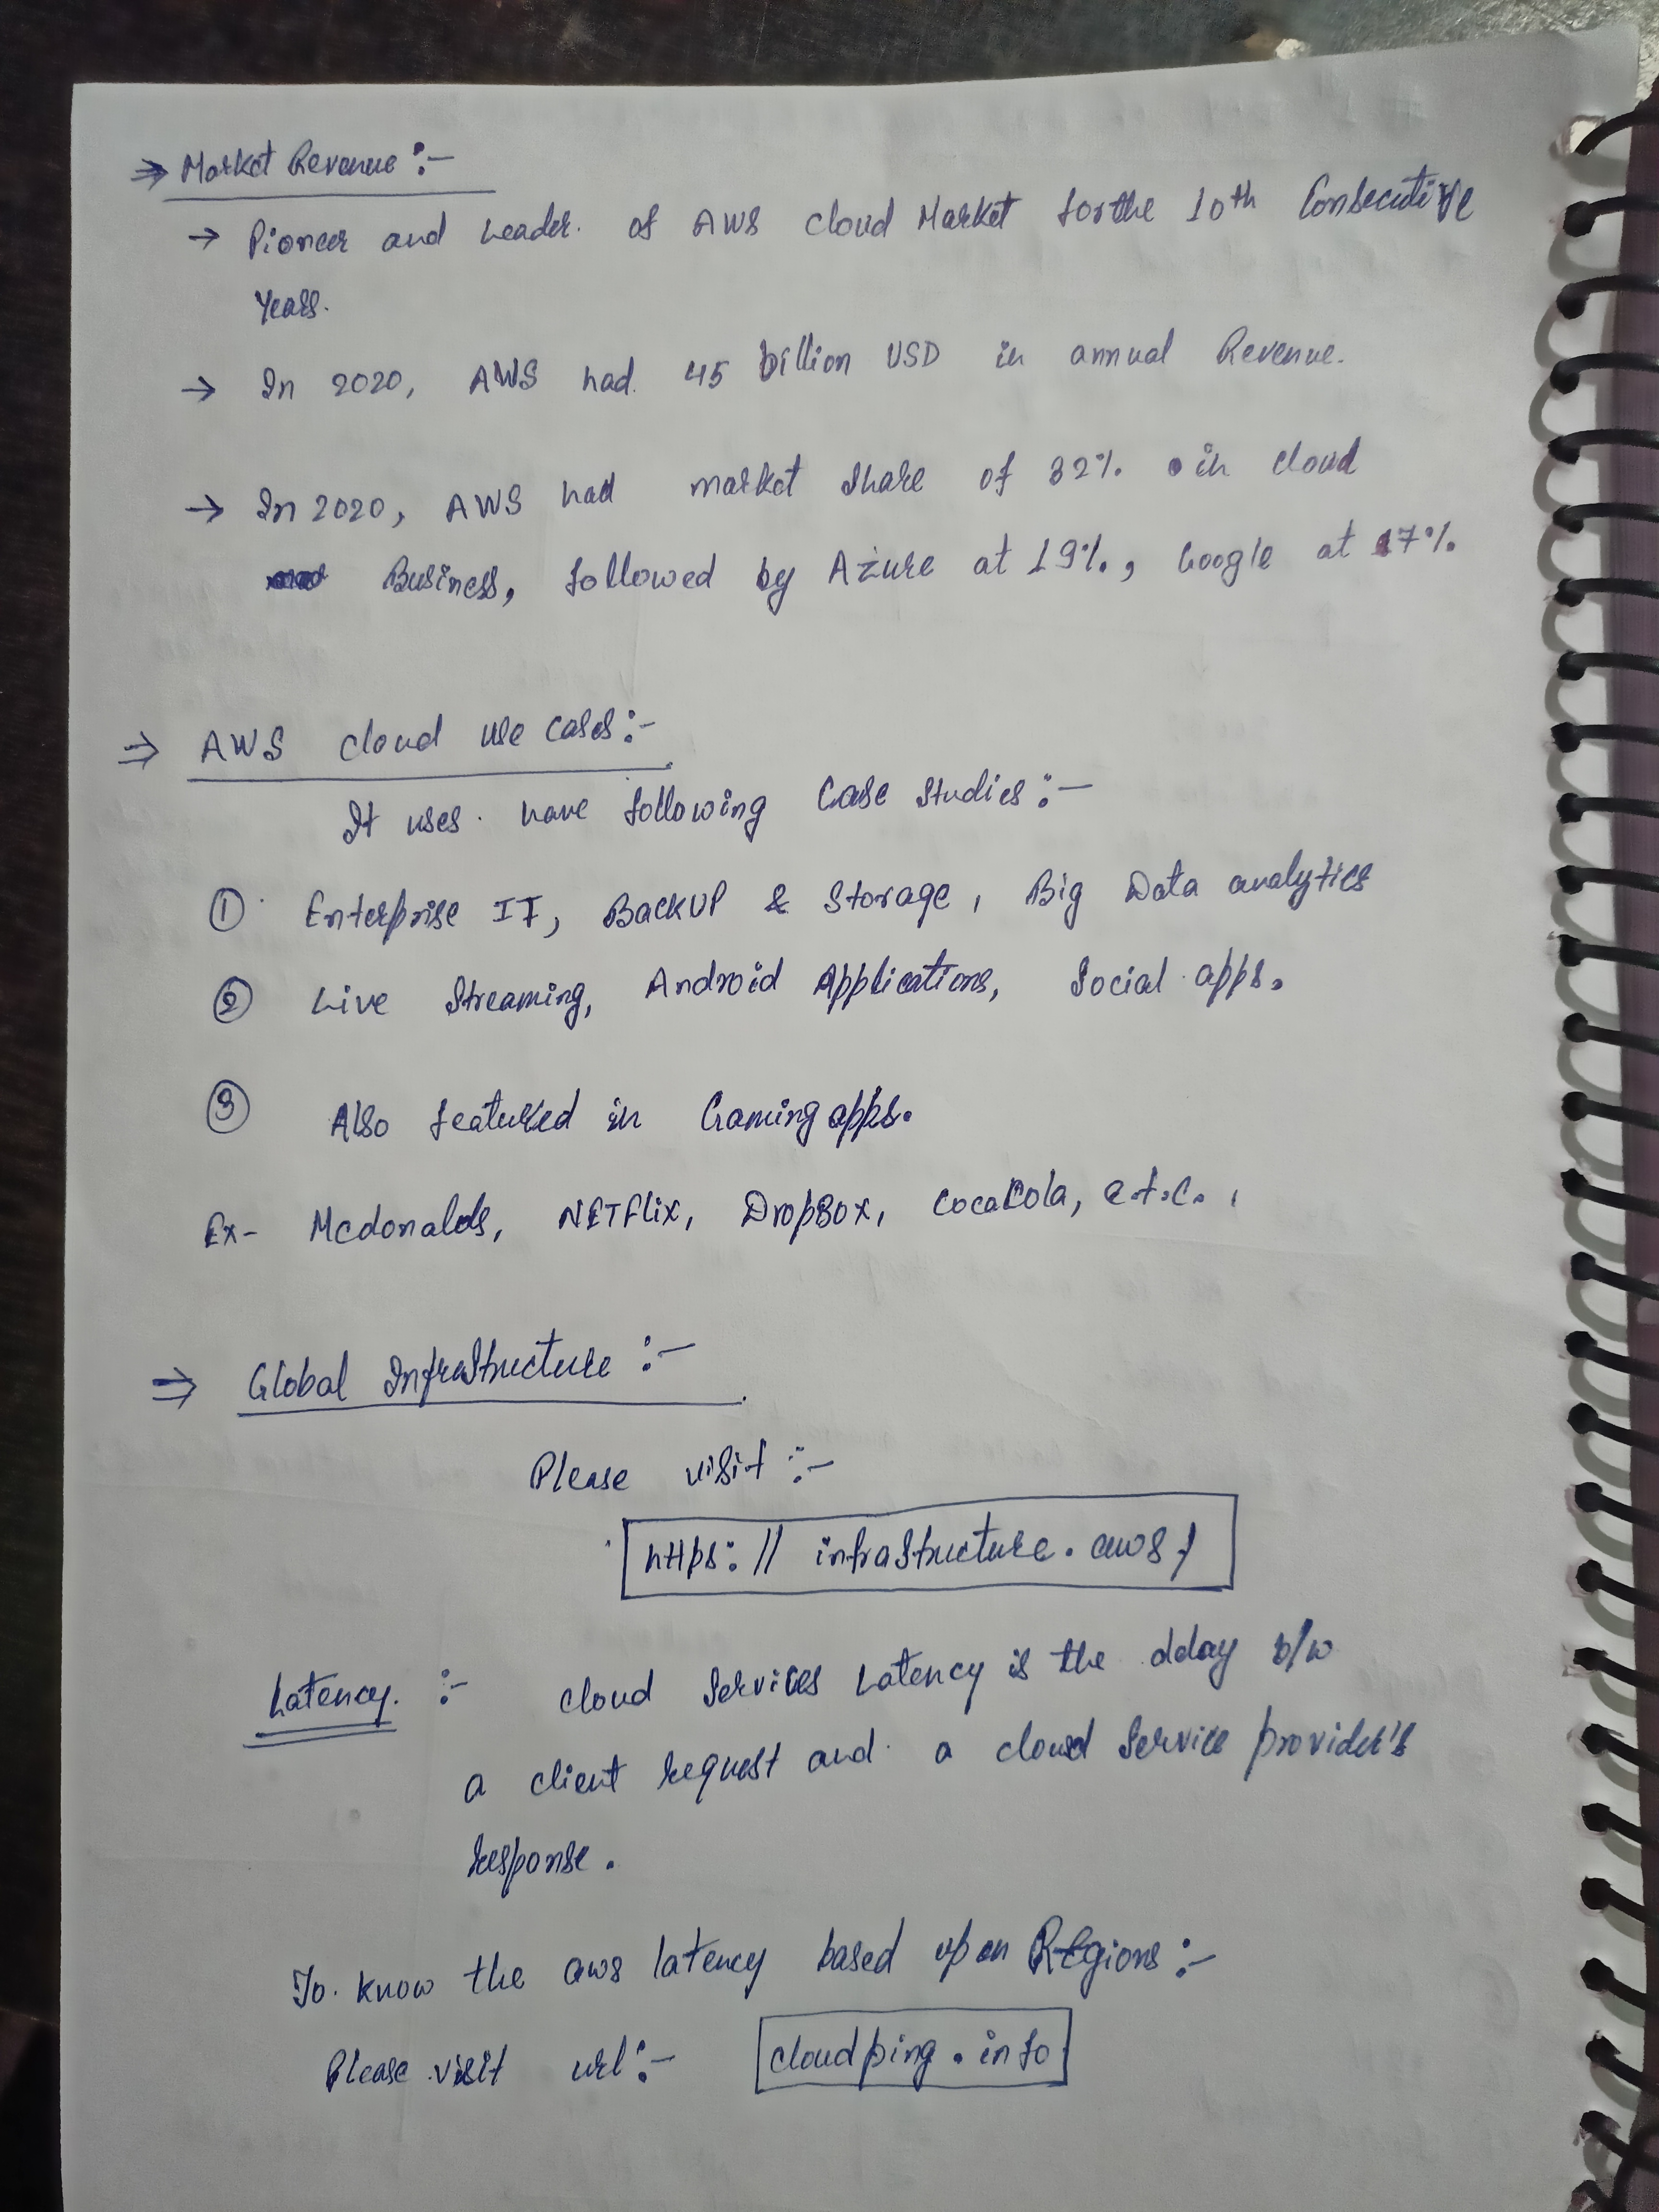 ⇒ Market Revenue :-
→ Pioneer and Leader. of AWS cloud Market for the 10th Consecutive
Years.
→ In 2020, AWS had 45 billion USD in annual Revenue.
→ In 2020, AWS had market share of 32% in cloud
Business, followed by Azure at 19%, Google at 17%.
⇒ AWS cloud use cases :-
It uses have following Case Studies :-
① Enterprise IT, BackUP & Storage, Big Data analytics
② Live Streaming, Android Applications, Social apps.
③ Also featured in Gaming apps.
Ex- Mcdonalds, NETFlix, DropBox, CocaCola, e.t.c. ,
⇒ Global Infrastructure :-
Please visit :-
https: // infrastructure. aws /
Latency. :- cloud Services Latency is the delay b/w
a client request and a cloud Service provider's
response.
To know the aws latency based upon Regions :-
Please visit url :- cloudping . info